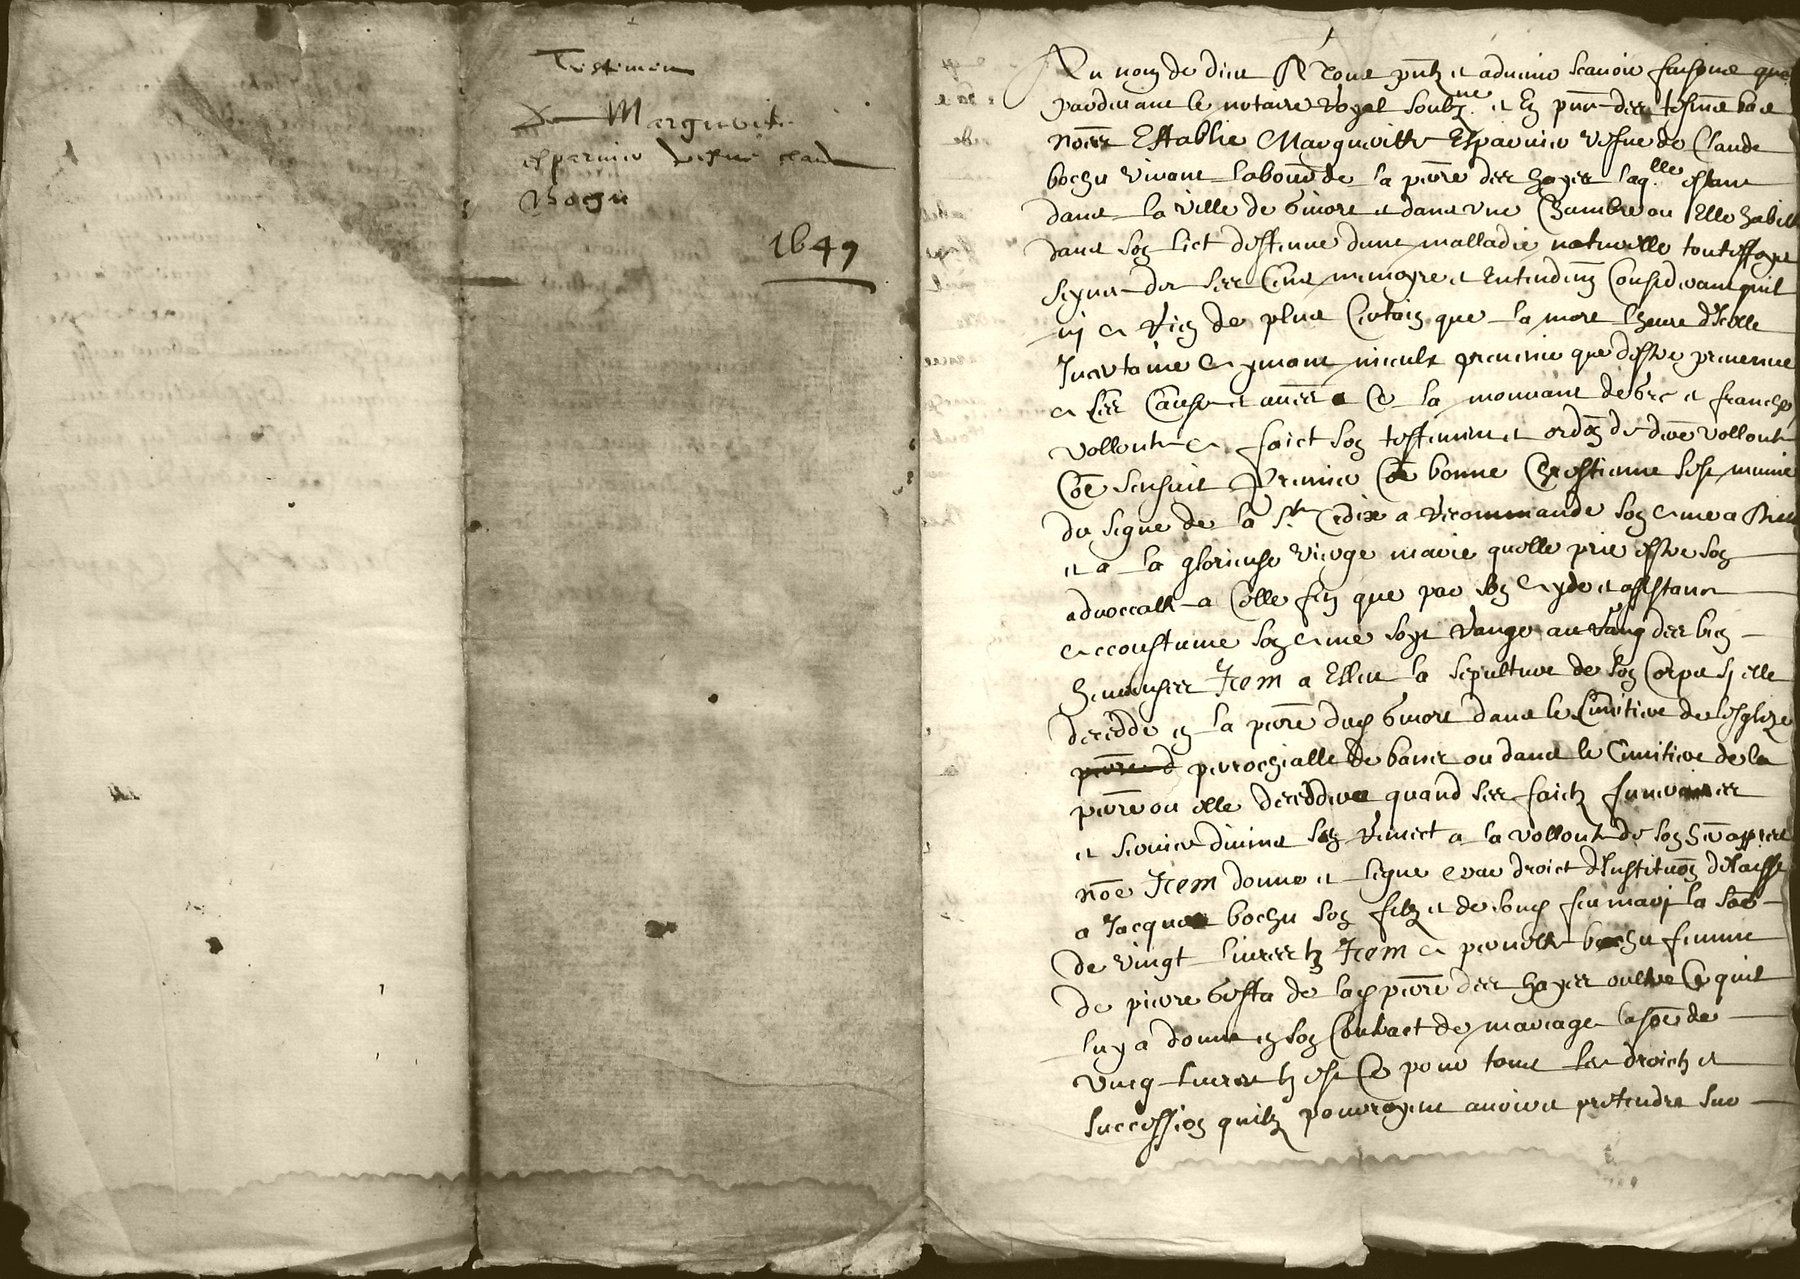 Testimen
De Margueritte
esparnier vesfue claude
Bochu
1649
Au nom de dieu A tous pntz et advenir scavoir faisons que
pardevant le notaire Royal soubzne et en pnce des tesmz bas
nomes Establie Margueritte Esparnier vesfue de Claude
bochu vivant labour de la parre des hayes laqlle estant
dans la ville de Givors et dans une Chambre ou Elle habitte
dans son lict destenue dune malladie naturelle touteffoys
seyne de ses sens memoyre et Entendemt Considerant quil
ny a Rien de plus Certain que la mort lheure dIcelle
Incertaine Aymant mieulx prevenir que destre prevenue
a ses Causes et aues a Ce la mouvant de gre et franche
vollonte a faict son testemen et ordon de dere vollonte
Coe sensuit Premier Coe bonne Chrestienne sest munie
du signe de la Ste Croix a Recommande son ame a Dieu
et a la glorieuse vierge marie quelle prie estre son
advoccatte a Celle fin que par son Ayde et assistance
accoustume son ame soyt Range au Rang des bien
heureuses Item a Esleu la sepulture de son Corps sy elle
decedde en la parre dud Givors dans le Cimitiere de lesglize
parrochialle de bans ou dans le Cimitiere de la
parre ou elle deceddera quand ses faictz funeraires
et service divins sen Remect a la vollonte de son her appres
nome Item donne et legue par droict dInstituon delaisse
a Jacques bochu son filz et de sond feu mary la some
de vingt livres tz Item a pernette bochu femme
de pierre Gosta de lad parre des hayes oultre Ce quil
luy a donne en son Contract de mariage la some de
vingt livres tz est Ce pour tous les droictz et
succession quilz pourroyent avoir et pretendre sur